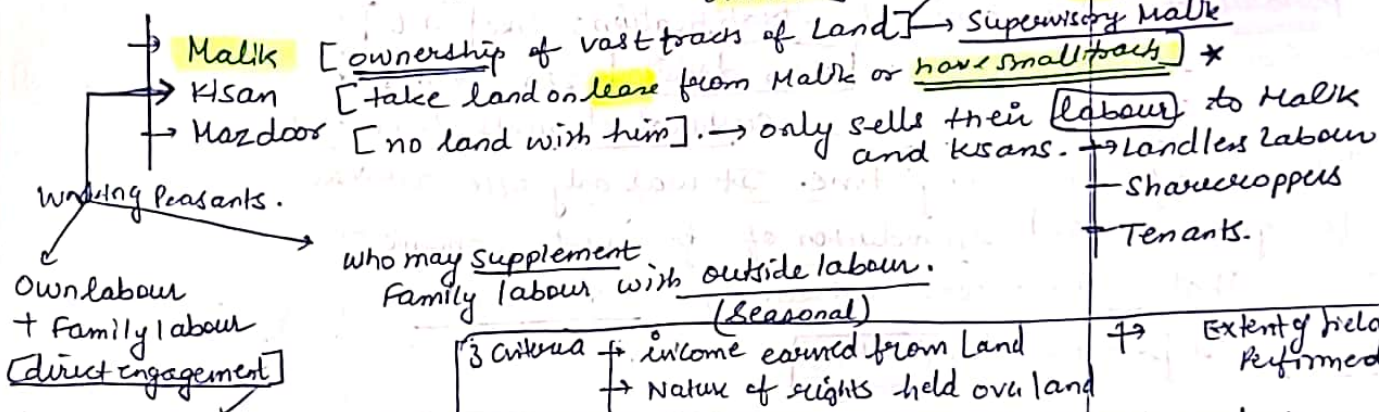 → Malik [ownership of vast tracts of Land] → Supervisory Malik
→ Kisan [take land on lease from Malik or have small tracts] *
→ Mazdoor [no land with him]. → only sells their labour to Malik
and kisans. → Landless Labour
Sharecroppers
Tenants.
Working Peasants.
who may supplement
Family labour with outside labour.
(Seasonal)
Own labour
+ Family labour
[direct engagement]
3 criteria → income earned from Land
→ Nature of rights held over land
→ Extent of field
Performed